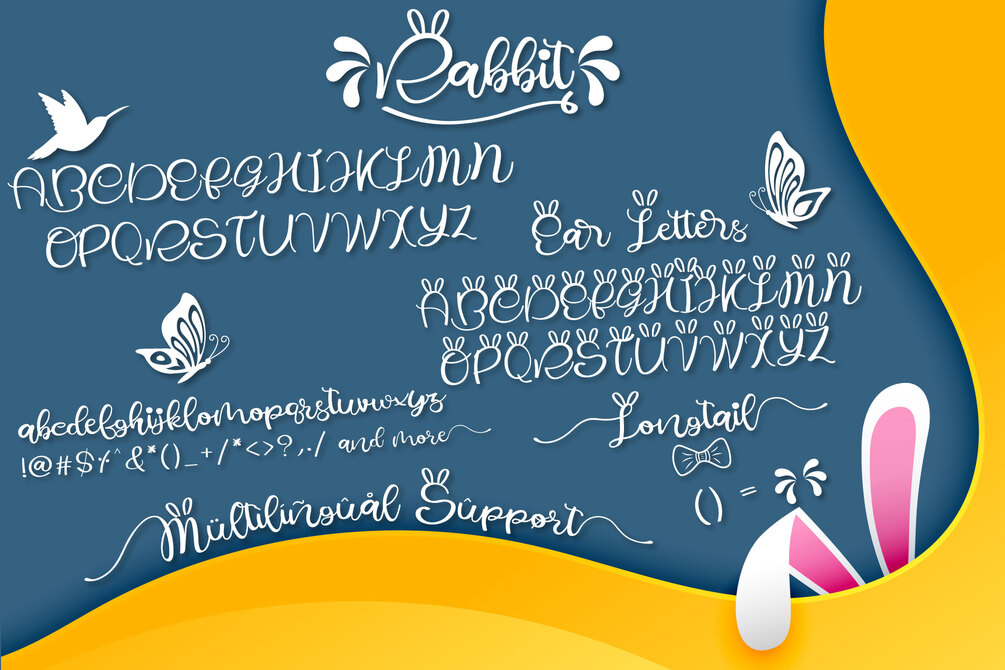 Rabbit
ABCDEFGHIJKLMN
OPQRSTUVWXYZ
Ear Letters
ABCDEFGHIJKLMN
OPQRSTUVWXYZ
abcdefghijklomopqrstuvwxyz
!@#$%^&*()_+/*<>?,./ and more
Longtail
() =
Mültilïñgûål Sûppørt